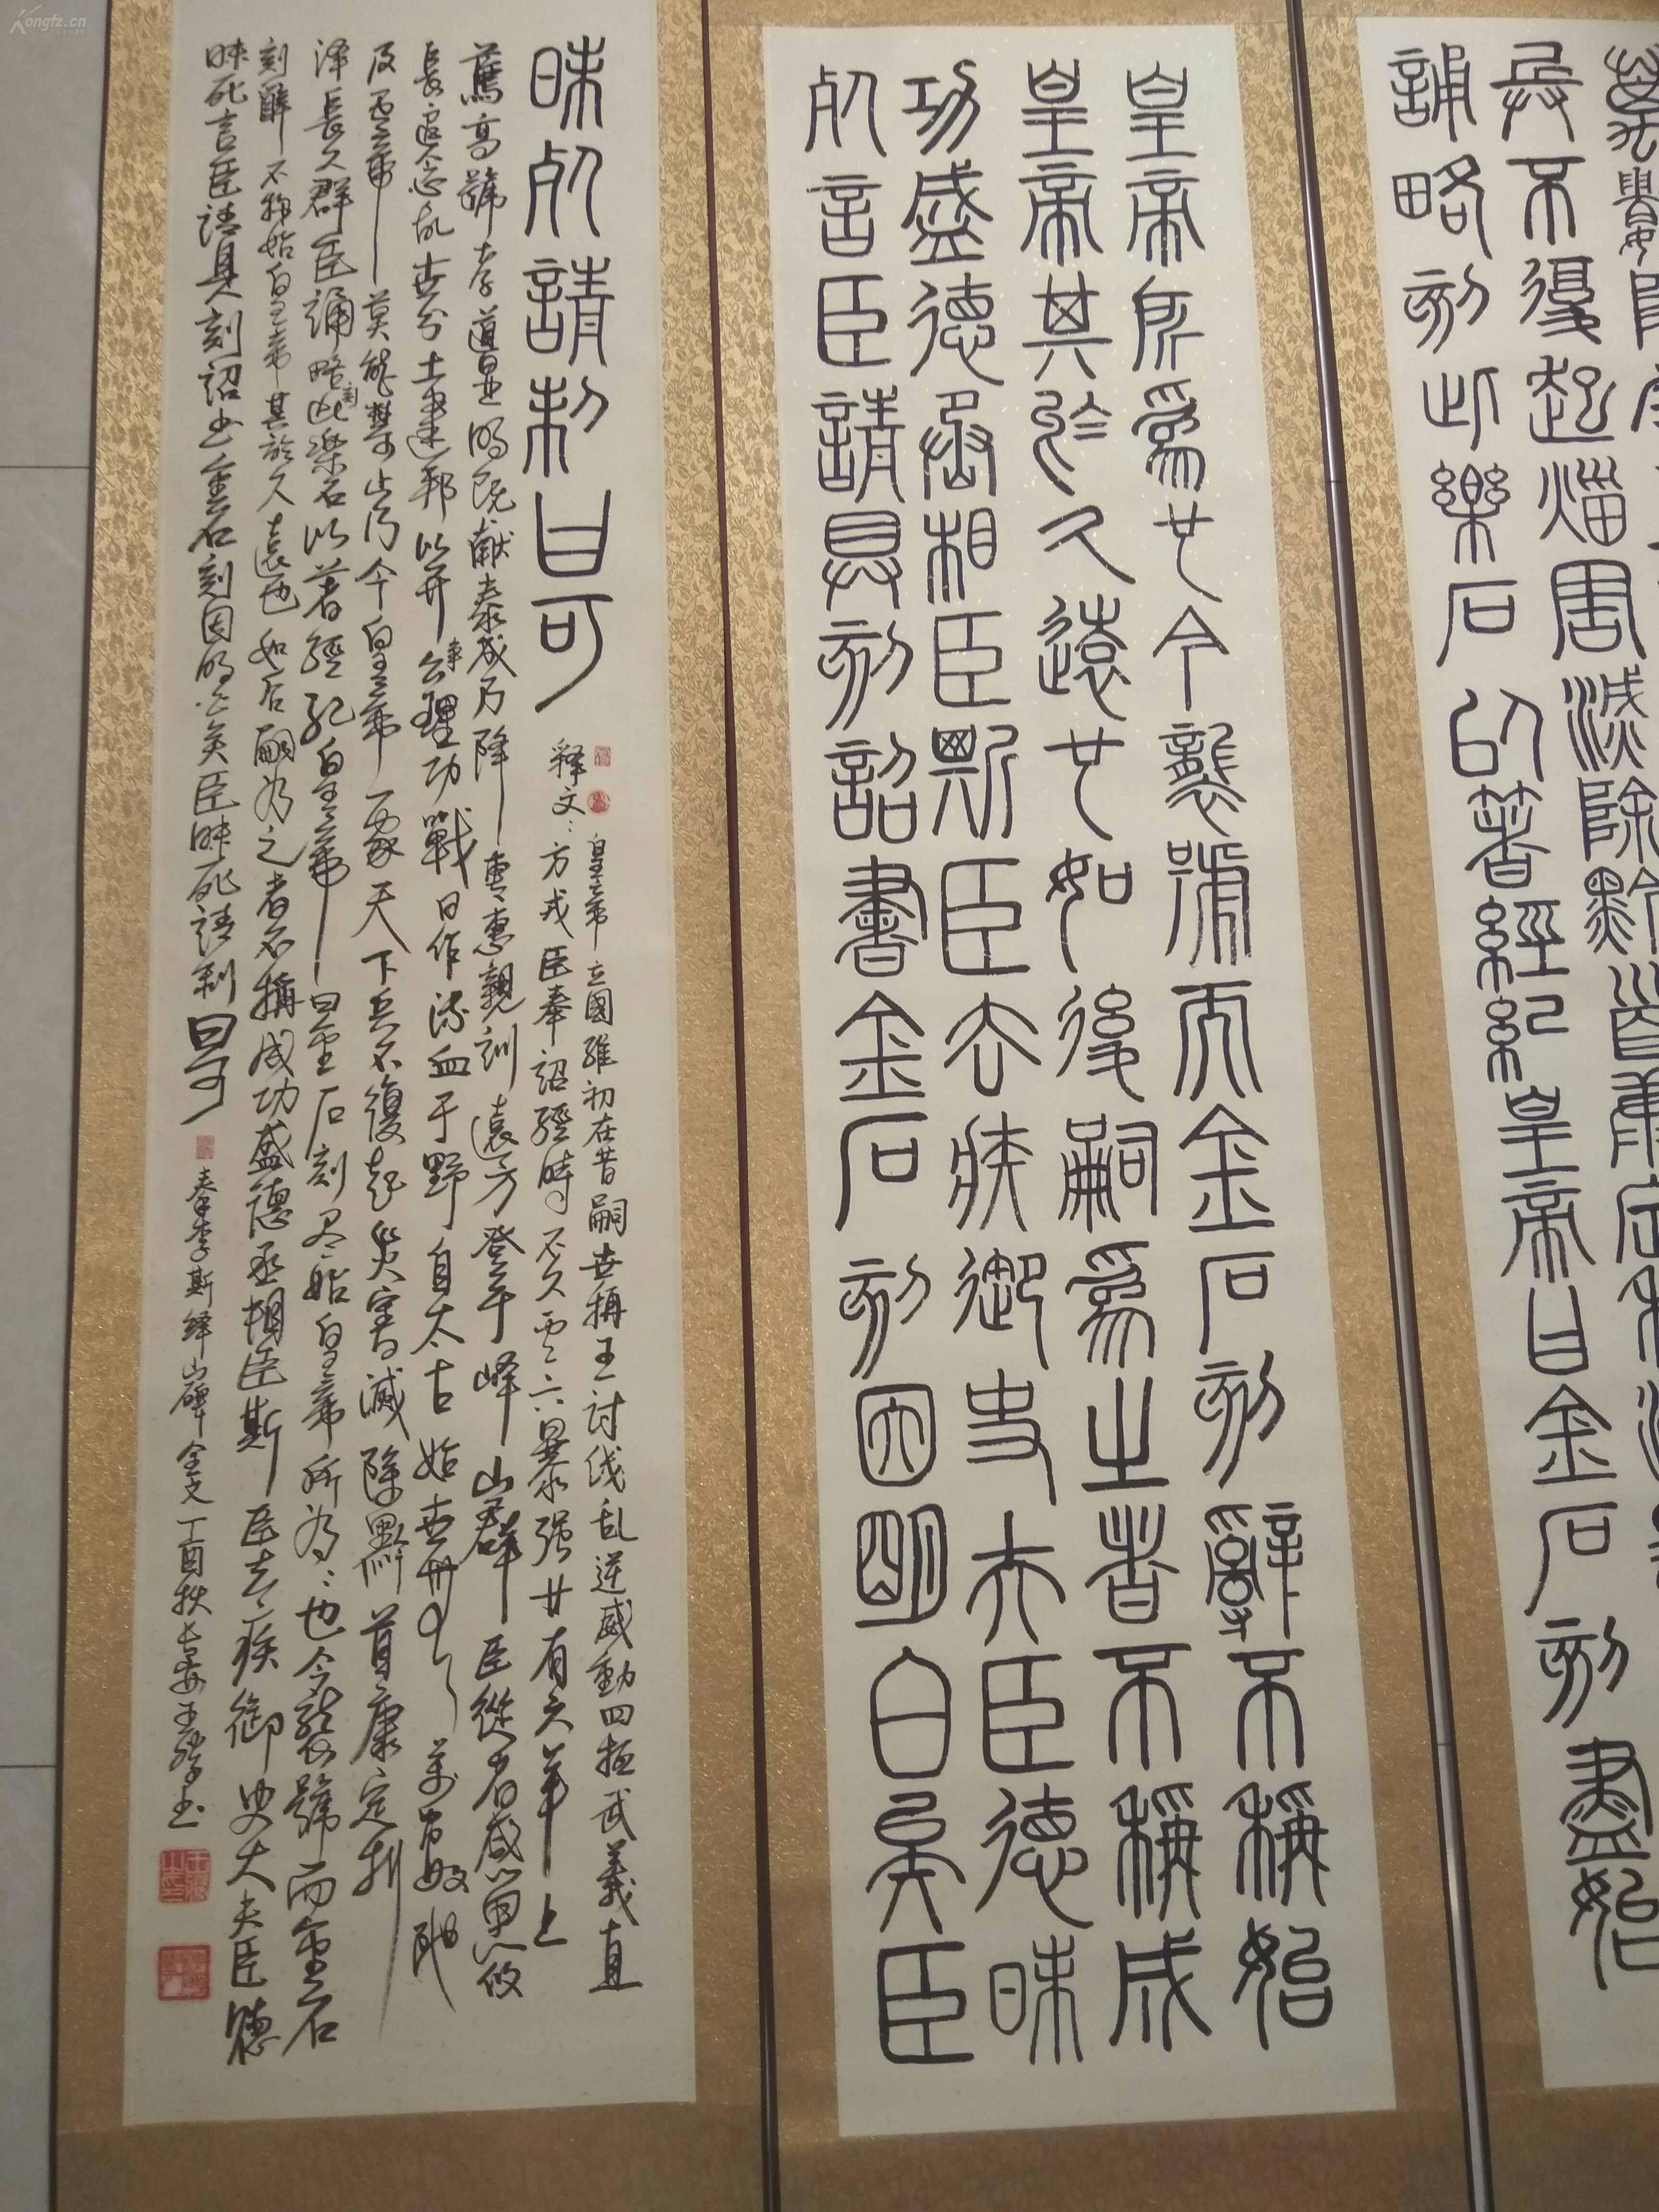 兵不復起災害滅除黔首康定利
誦略刻此樂石以著經紀皇帝曰金石刻盡始
皇帝所為也今襲號而金石刻辭不稱始
皇帝其於久遠也如後嗣為之者不稱成
功盛德丞相臣斯臣去疾御史夫臣德昧
死言臣請具刻詔書金石刻因明白矣臣
昧死請制曰可
皇帝立國維初在昔嗣世稱王討伐乱逆威動四極武義直
释文：方戎臣奉詔經時不久六暴强廿有六年上
薦高號孝道显明既献泰成乃降專惠親訓遠方登于峄山群臣從者咸思攸
長追念乱世分土建邦以开争理功戰日作流血于野自太古始世万数陀
及五帝莫能禁止乃今皇帝一家天下兵不復起災害滅除黔首康定利
泽長久群臣誦略刻此樂石以著經紀皇帝曰金石刻尽始皇帝所为也今襲號而金石
刻辞不称始皇帝其於久遠也如后嗣为之者不稱成功盛德丞相臣斯臣去疾御史大夫臣德
昧死言臣請具刻詔书金石刻因明白矣臣昧死请制曰可
秦李斯绎山碑全文丁酉秋长安王书
Kongfz.cn